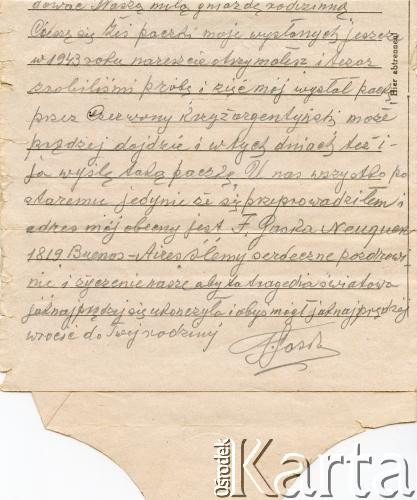 dować Naszą miłą gniazdę rodzinną
Cieszę się żeś paczki moje wysłanych jeszcze
w 1943 roku nareszcie otrzymałeś i teraz
zrobiliśmi próbę i mój wysłał paczkę
przez Czerwony Krzyż argentyński może
prędzej dojdzie i w tych dniach też i
ja wyślę taką paczkę, U nas wszystko po
staremu jedynie że się przeprowadziłem i
adres mój obecny jest F. Gaska Neuquen
1819 Buenos-Aires ślemy serdeczne pozdrow
nie i życzenie nasze aby ta tragedia światowa
jaknajprędzej się ukończyła i abyś mógł jaknajprędzej
wrócić do Twej rodziny
Hier abtrennen!
Ośrodek
Karta